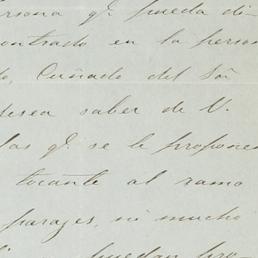 ersona qe. pueda di-
contrado en la person
do, Cuñado del Sôr
desea saber de V.
las qe. se le proponen
tocante al ramo
parages, ni mucho
puedan pro-